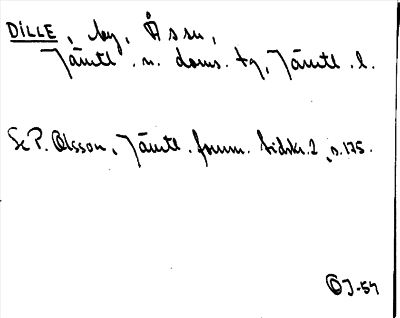 DILLE, by, Åssn,
Jämtl. n. doms. tg, Jämtl. l.
Se P. Olsson, Jämtl. fornm. tidskr. 2, s. 175.
OJ-54